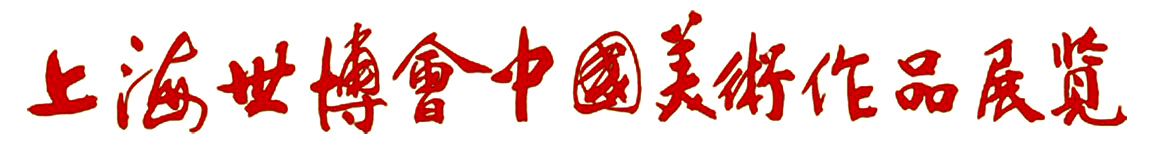 上海世博會中國美術作品展览